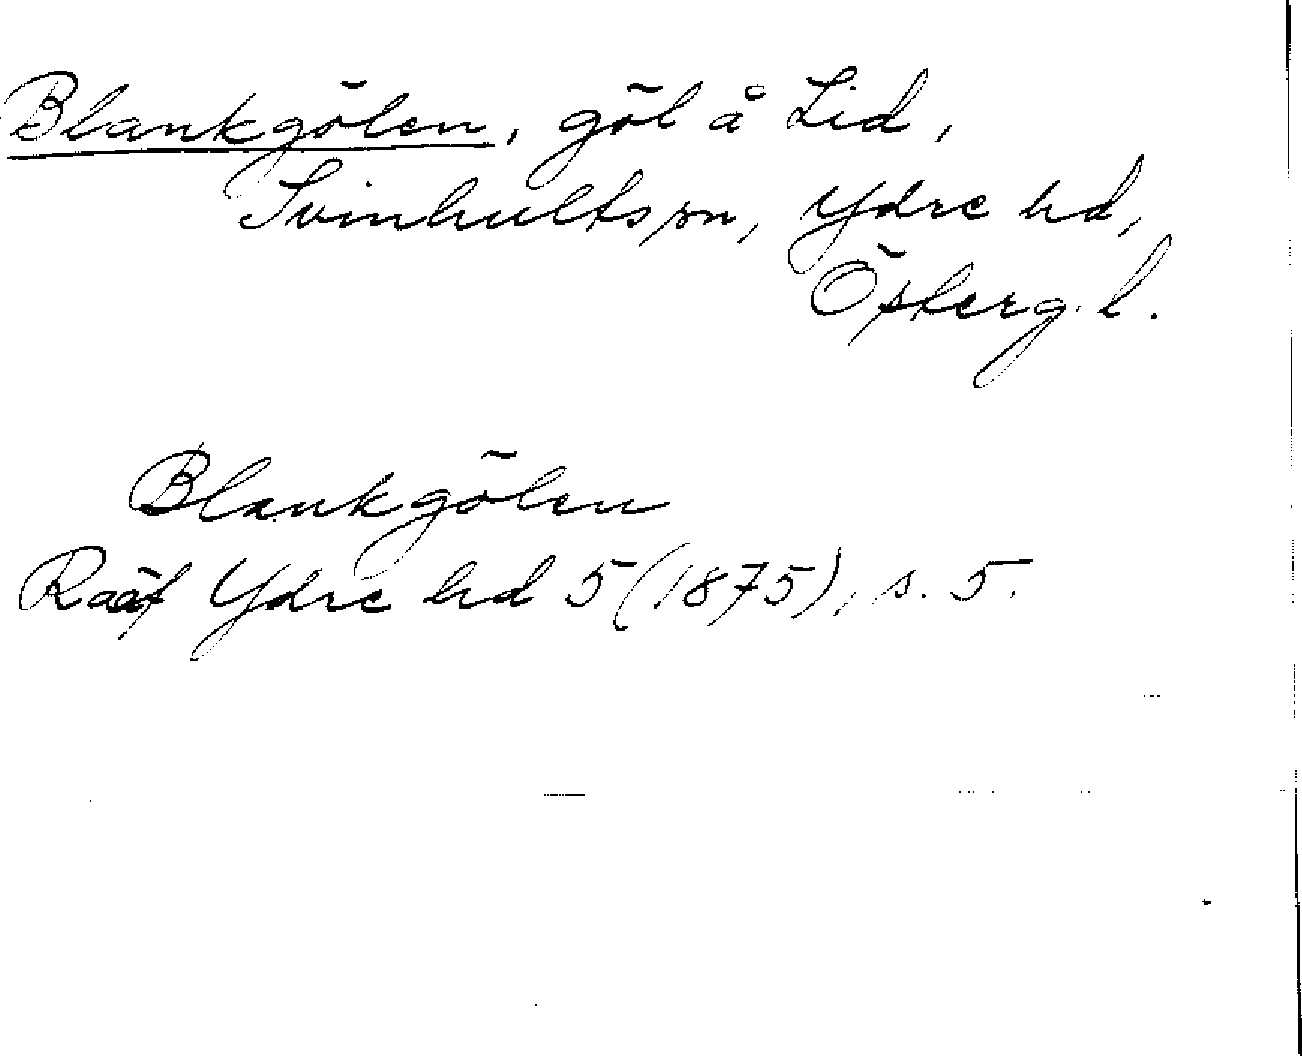 Blankgölen, göl å Lid,
Svinhults sn, Ydre hd,
Österg. l.
Blankgölen
Rääf Ydre hd 5 (1875), s. 5.